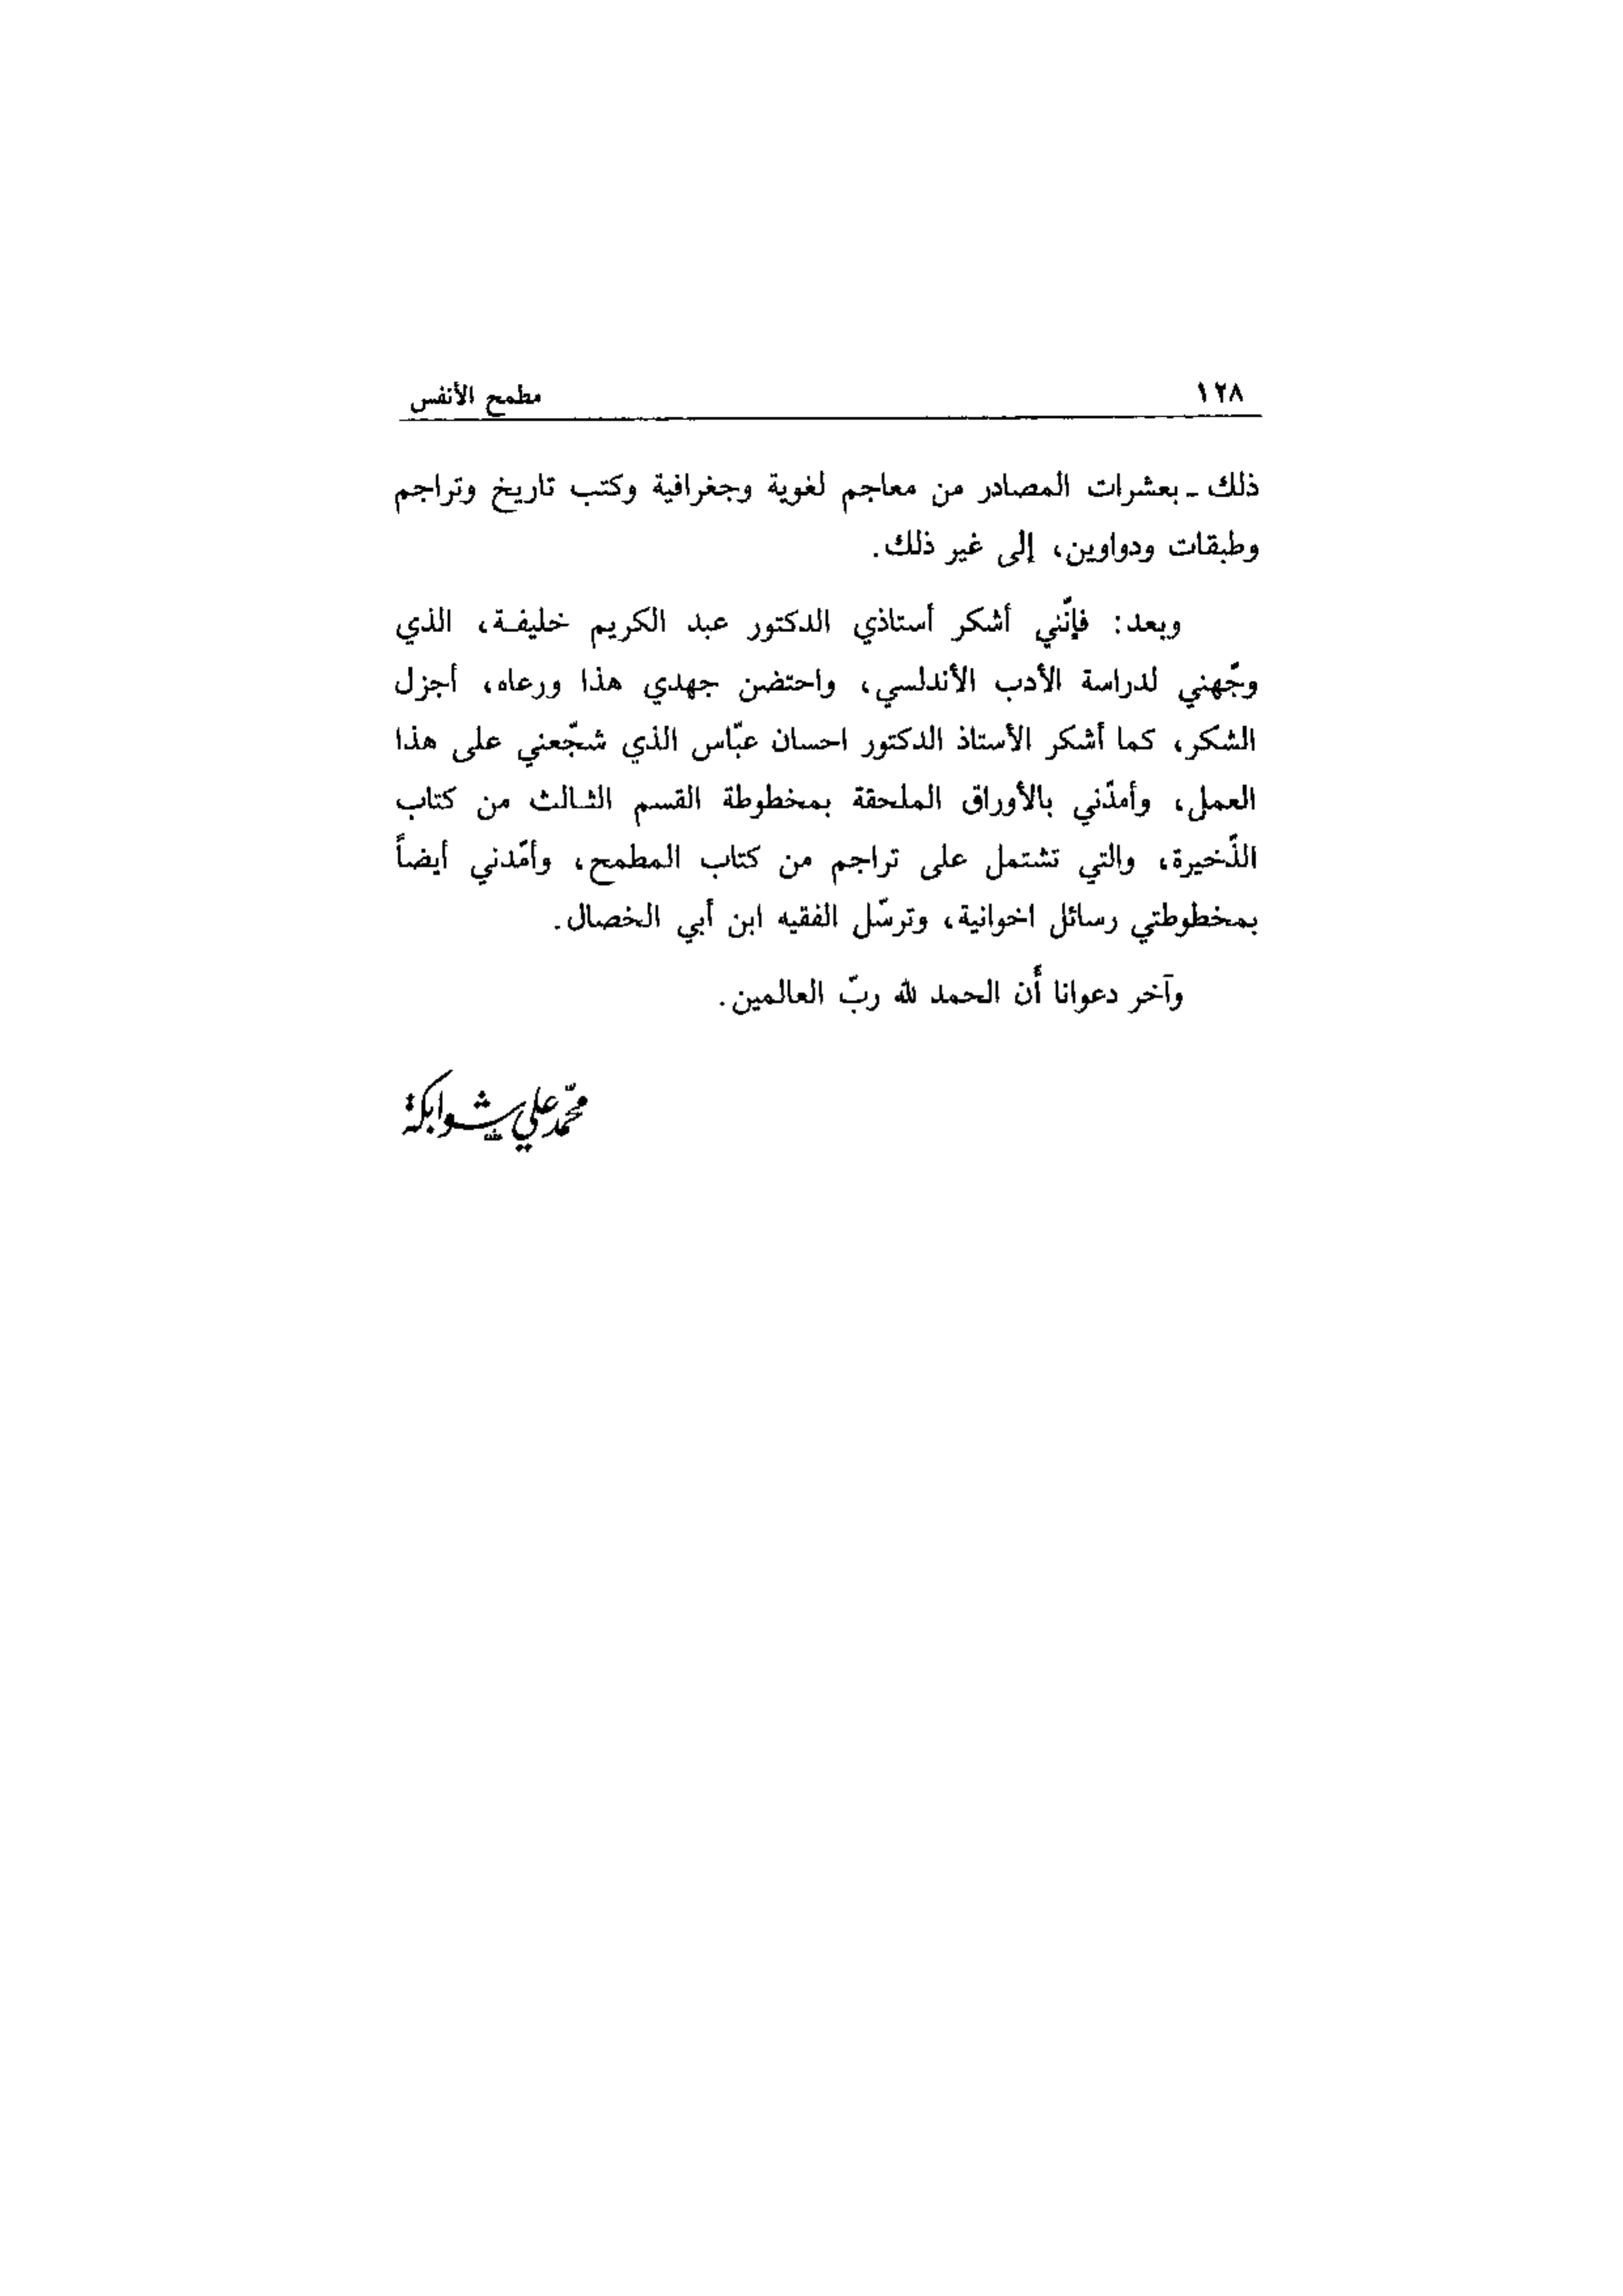 ١٢٨
مطمح الأنفس
ذلك ـ بعشرات المصادر من معاجم لغوية وجغرافية وكتب تاريخ وتراجم
وطبقات ودواوين، إلى غير ذلك.
وبعد: فإنّني أشكر أستاذي الدكتور عبد الكريم خليفـة، الذي
وجّهني لدراسة الأدب الأندلسي، واحتضن جهدي هذا ورعاه، أجزل
الشكر، كما أشكر الأستاذ الدكتور احسان عبّاس الذي شجّعني على هذا
العمل، وأمدّني بالأوراق الملحقة بمخطوطة القسم الثـالث من كتاب
الذّخيرة، والتي تشتمل على تراجم من كتاب المطمح، وأمّدني أيضاً
بمخطوطتي رسائل اخوانية، وترسّل الفقيه ابن أبي الخصال.
وآخر دعوانا أن الحمد لله ربّ العالمين.
محمّد علي شوابكة